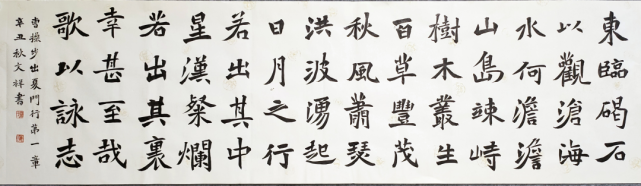 東臨碣石
以觀滄海
水何澹澹
山島竦峙
樹木叢生
百草豐茂
秋風蕭瑟
洪波湧起
日月之行
若出其中
星漢粲爛
若出其裏
幸甚至哉
歌以詠志
曹操步出夏門行第一章
辛丑秋文祥書